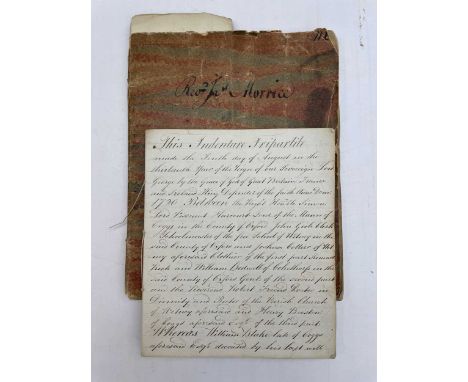 Revd Jas Morrice
This Indenture Tripartite
made the Tenth day of August in the
thirteenth Year of the Reign of our Sovereign Lord
George by the Grace of God of Great Britain France
and Ireland King Defender of the faith Anno Dom
1720 Between the Right Honble Simon
Lord Viscount Harcourt Lord of the Manor of
Cogg in the County of Oxford John Clark
Schoolmaster of the free School of Witney in the
said County of Oxford and Joshua Collier of Wit
ney aforesaid Clothier of the first part
and William in the
said County of Oxford Gent of the second part
and the Reverend Robert Friend Doctor in
Divinity and Rector of the Parish Church
of Witney aforesaid and Henry
of Coggs aforesaid of the third part
Whereas William Blake late of Coggs
aforesaid deceased by his last will